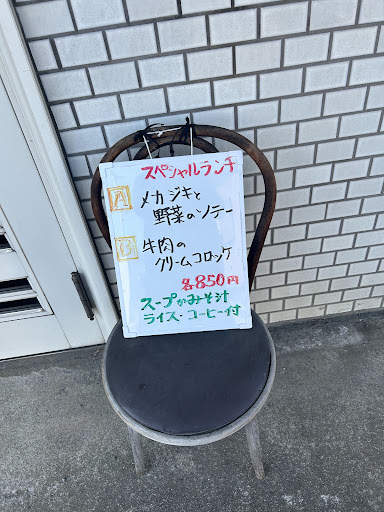 スペシャルランチ
A メカジキと
野菜のソテー
B 牛肉の
クリームコロッケ
各850円
スープかみそ汁
ライス・コーヒー付